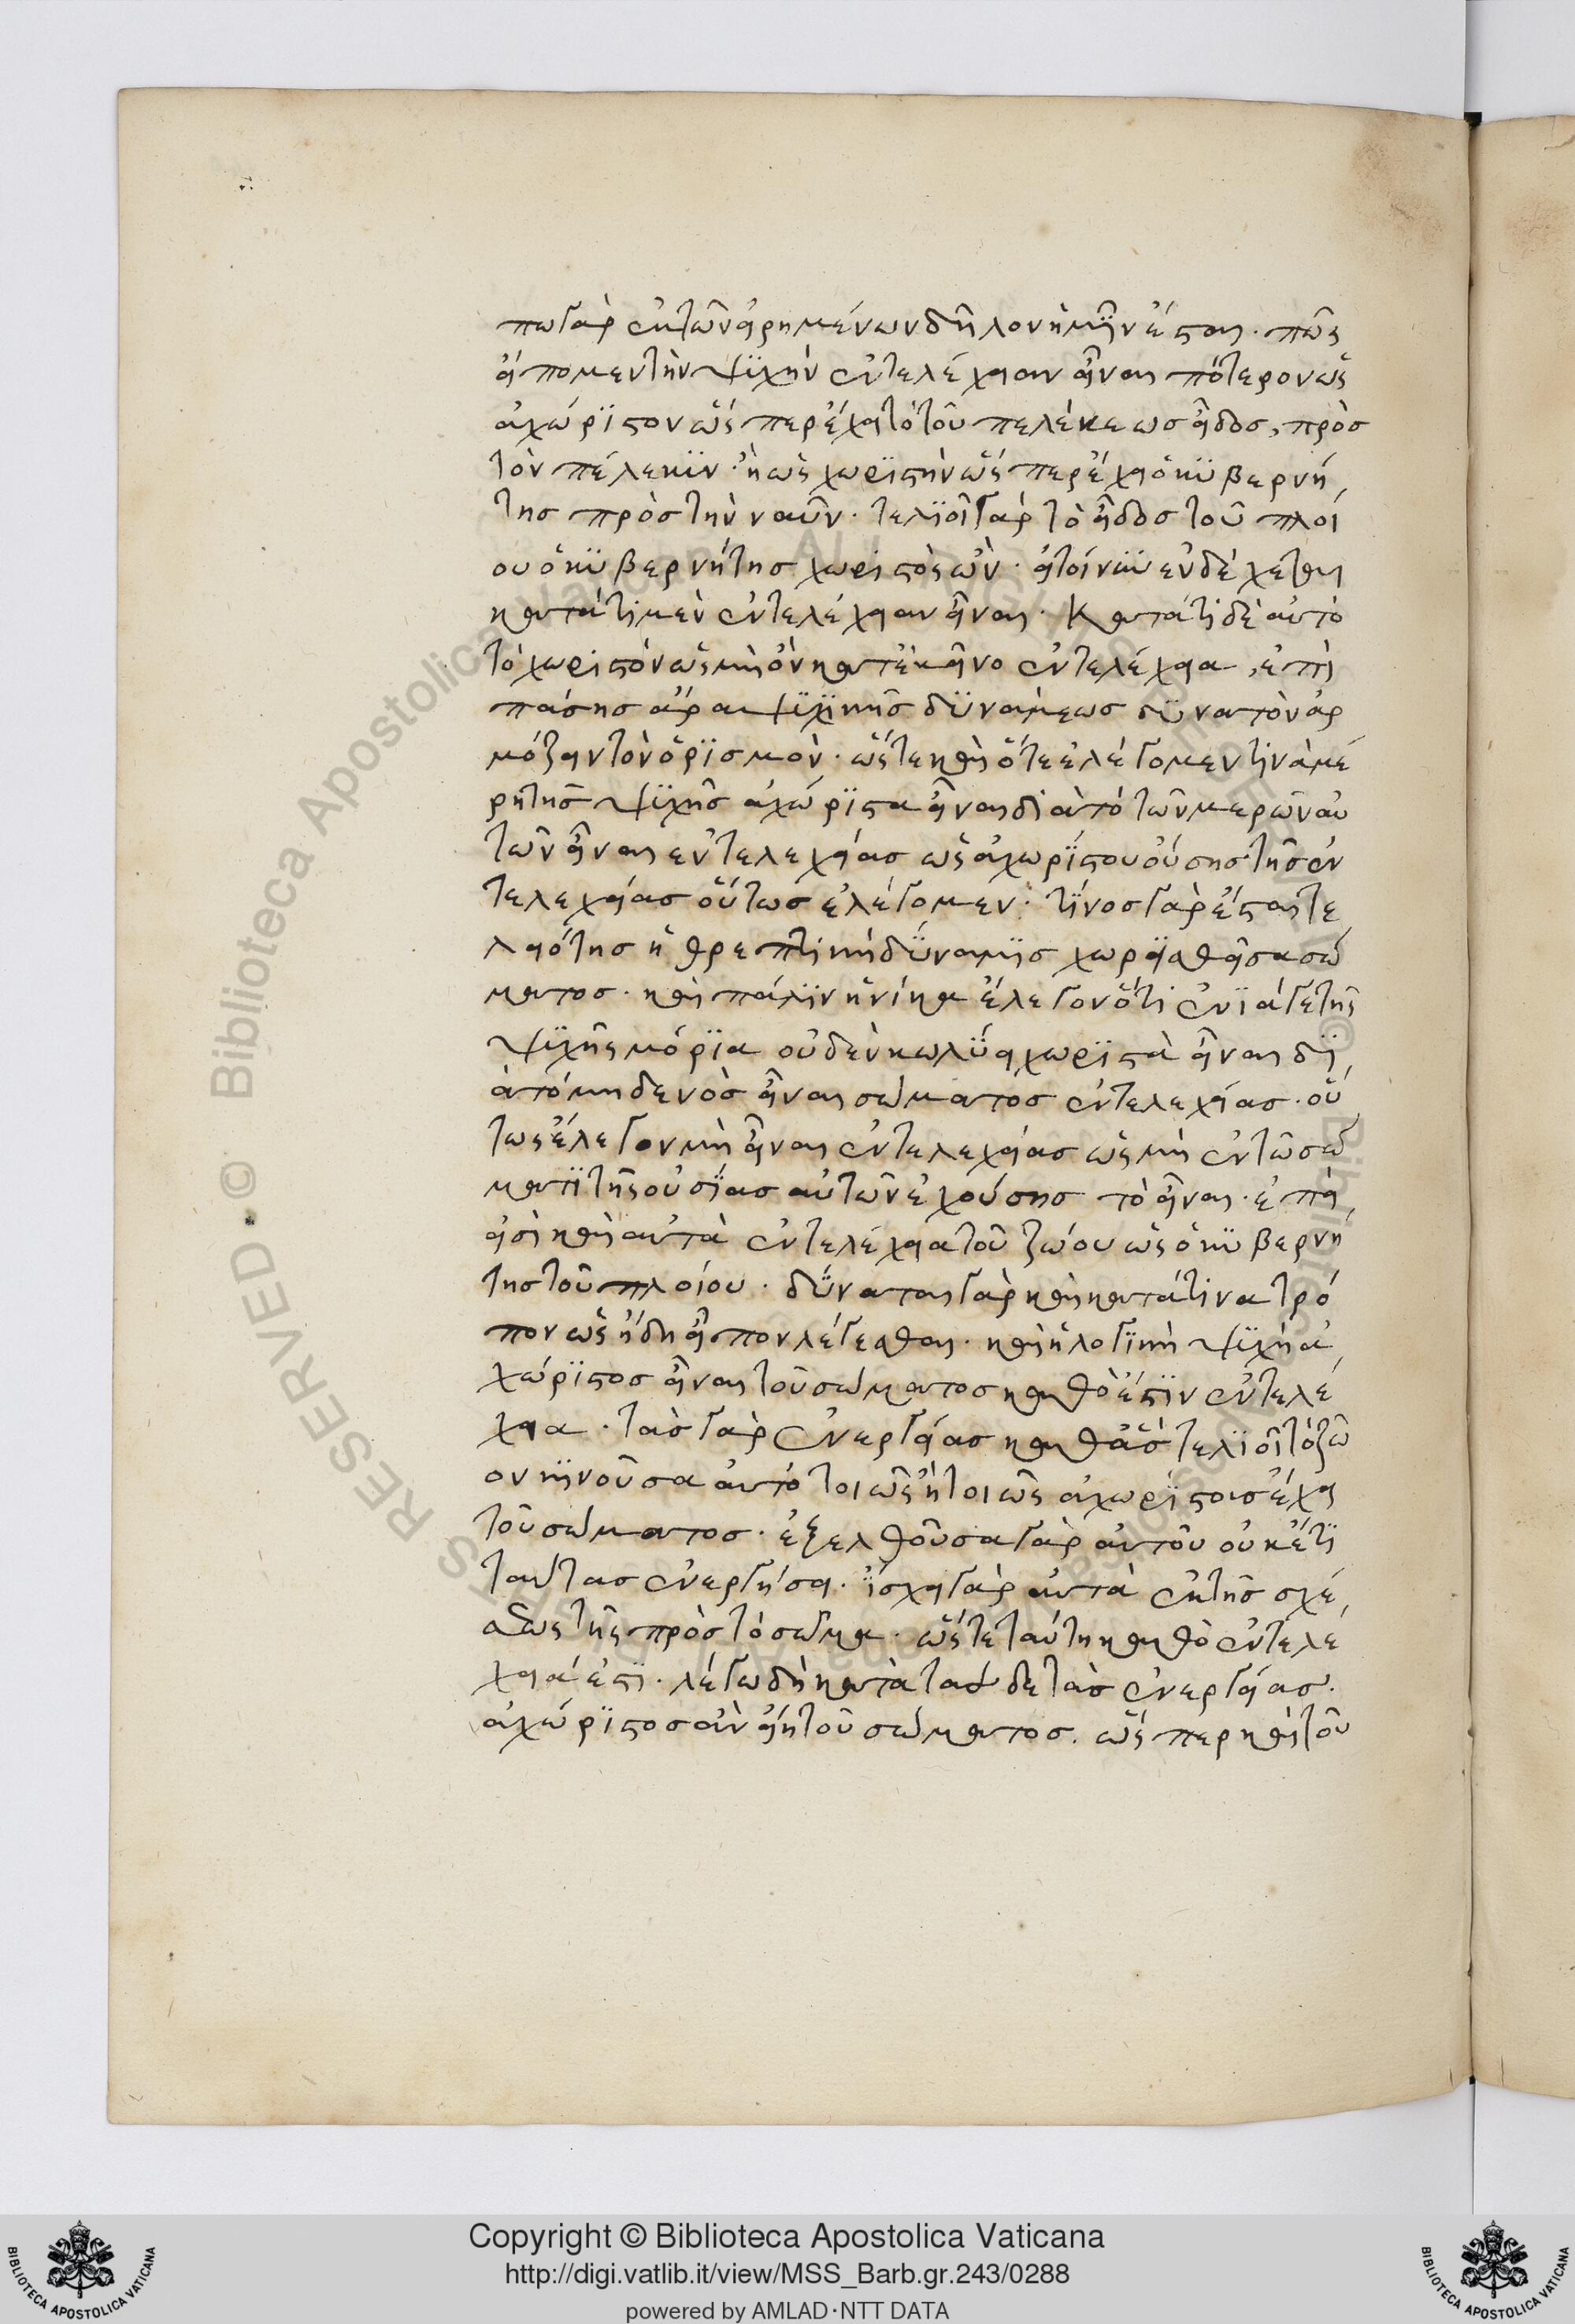 πω γὰρ ἐκ τῶν εἰρημένων δῆλον ἡμῖν ἔσται. πῶς
εἴπομεν τὴν ψυχὴν ἐντελέχειαν εἶναι πότερον ὡς
ἀχώριστον ὥσπερ ἔχει τὸ τοῦ πελέκεως εἶδος, πρὸς
τὸν πέλεκυν. ἢ ὡς χωριστὴν ὥσπερ ἔχει ὁ κυβερνή
της πρὸς τὴν ναῦν. τελειοῖ γὰρ τὸ εἶδος τοῦ πλοί
ου ὁ κυβερνήτης χωριστὸς ὤν. εἰ τοίνυν ἐνδέχεται
κατά τι μὲν ἐντελέχειαν εἶναι. κατά τι δὲ αὐτὸ
τὸ χωριστὸν ὡς μὴ ὂν κατ' ἐκεῖνο ἐντελέχεια, ἐπὶ
πάσης ἄρα ψυχικῆς δυνάμεως δυνατὸν ἁρ
μόζειν τὸν ὁρισμόν. ὥστε καὶ ὅτε ἐλέγομεν τινὰ μέ
ρη τῆς ψυχῆς ἀχώριστα εἶναι διὰ τὸ τῶν μερῶν αὐ
τῶν εἶναι ἐντελεχείας ὡς ἀχωρίστου οὔσης τῆς ἐν
τελεχείας οὕτως ἐλέγομεν. τίνος γὰρ ἔσται τε
λειότης ἡ θρεπτικὴ δύναμις χωρισθεῖσα σώ
ματος. καὶ πάλιν ἡνίκα ἔλεγον ὅτι ἔνιά γε τῆς
ψυχῆς μόρια οὐδὲν κωλύει χωριστὰ εἶναι δι
ὰ τὸ μηδενὸς εἶναι σώματος ἐντελεχείας. οὕ
τως ἔλεγον μὴ εἶναι ἐντελεχείας ὡς μὴ ἐν τῷ σώ
ματι τῆς οὐσίας αὐτῶν ἐχούσης τὸ εἶναι. ἐπεὶ
εἰσὶ καὶ αὐτὰ ἐντελέχεια τοῦ ζώου ὡς ὁ κυβερνή
της τοῦ πλοίου. δύναται γὰρ καὶ κατά τινα τρό
πον ὡς ἤδη εἶπον λέγεσθαι. καὶ ἡ λογικὴ ψυχὴ ἀ
χώριστος εἶναι τοῦ σώματος καθὸ ἐστὶν ἐντελέ
χεια. τὰς γὰρ ἐνεργείας καθ' ἃς τελειοῖ τὸ ζῶ
ον κινοῦσα αὐτὸ τοιῶς ἢ τοιῶς ἀχωρίστους ἔχει
τοῦ σώματος. ἐξελθοῦσα γὰρ αὐτοῦ οὐκέτι
ταύτας ἐνεργήσει. ἴσχει γὰρ αὐτὰ ἐκ τῆς σχέ
σεως τῆς πρὸς τὸ σῶμα. ὥστε ταύτη καθὸ ἐντελέ
χειά ἐστι. λέγω δὴ κατὰ τάσδε τὰς ἐνεργείας.
ἀχώριστος ἂν εἴη τοῦ σώματος. ὥσπερ καὶ τοῦ